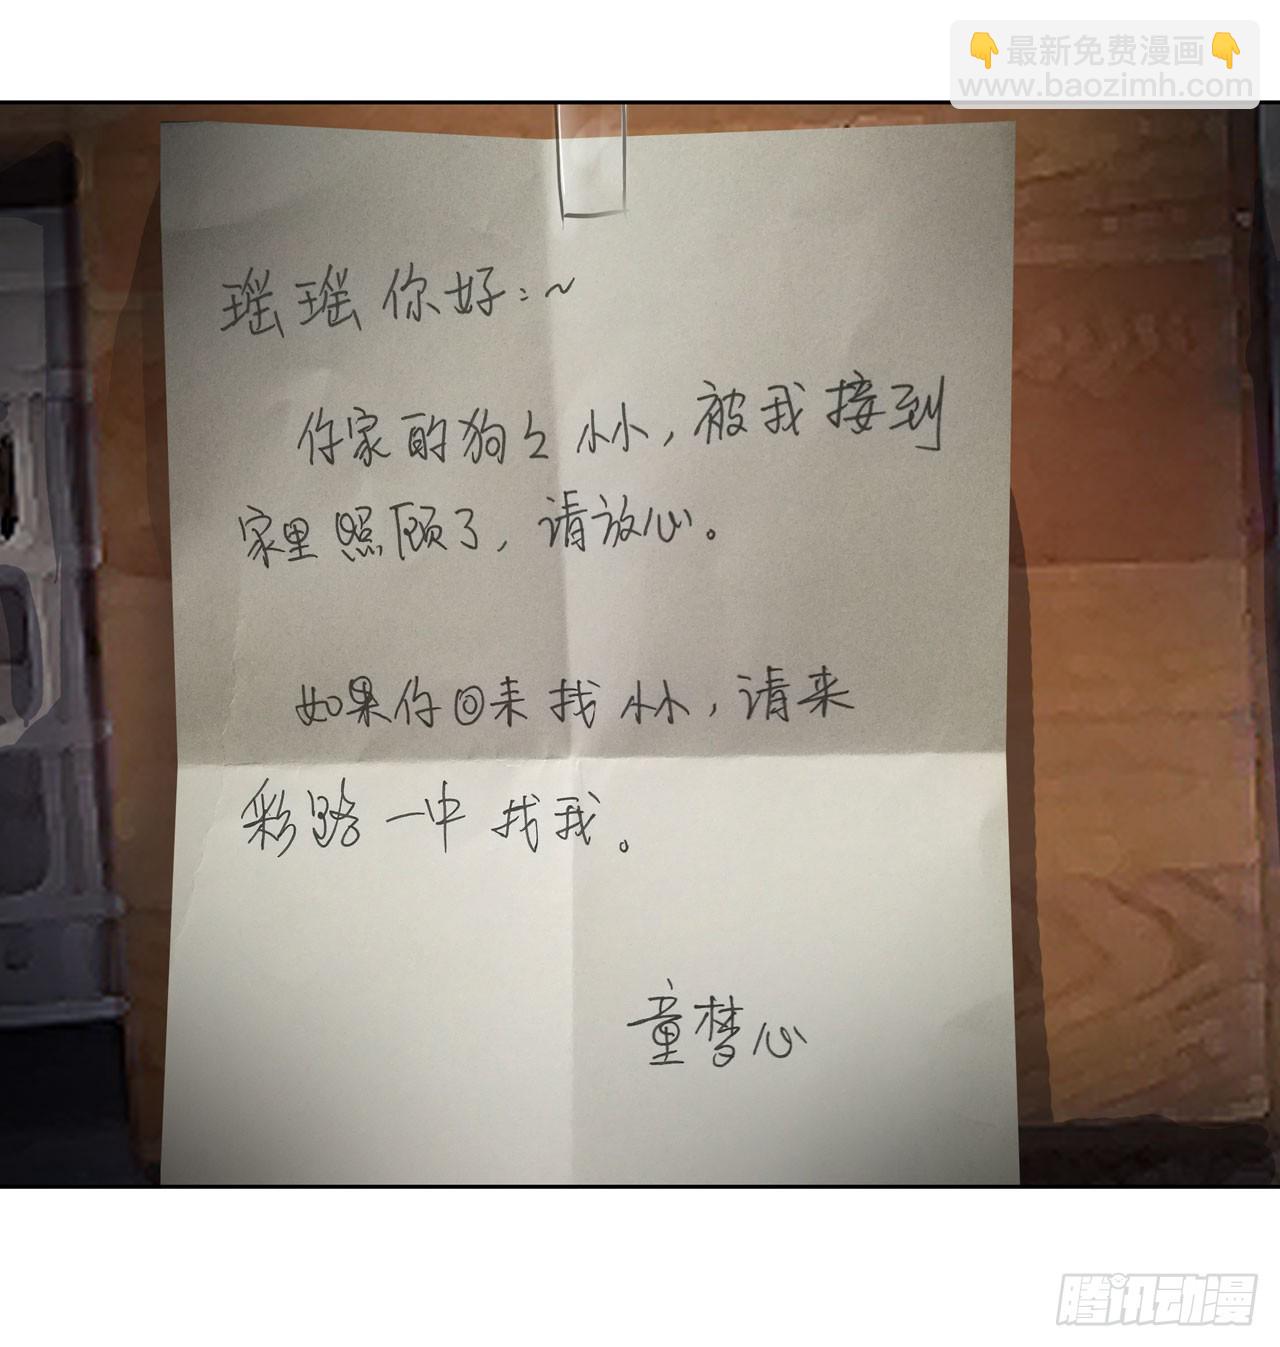 👇最新免费漫画👇
www.baozimh.com
瑶瑶你好:~
你家的狗勾小小,被我接到
家里照顾了,请放心。
如果你回来找小小,请来
彩路一中找我。
童梦心
腾讯动漫